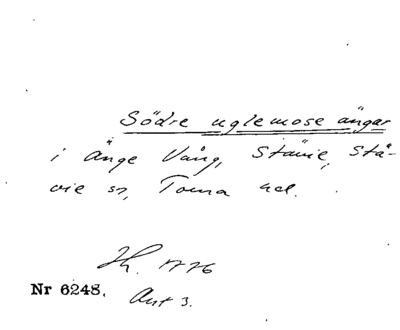 Södre uglemose ängar
i Änge Vång, Stävie, Stä-
vie sn, Torna hd.
Lh. 1776
Nr 6248. Akt 3.